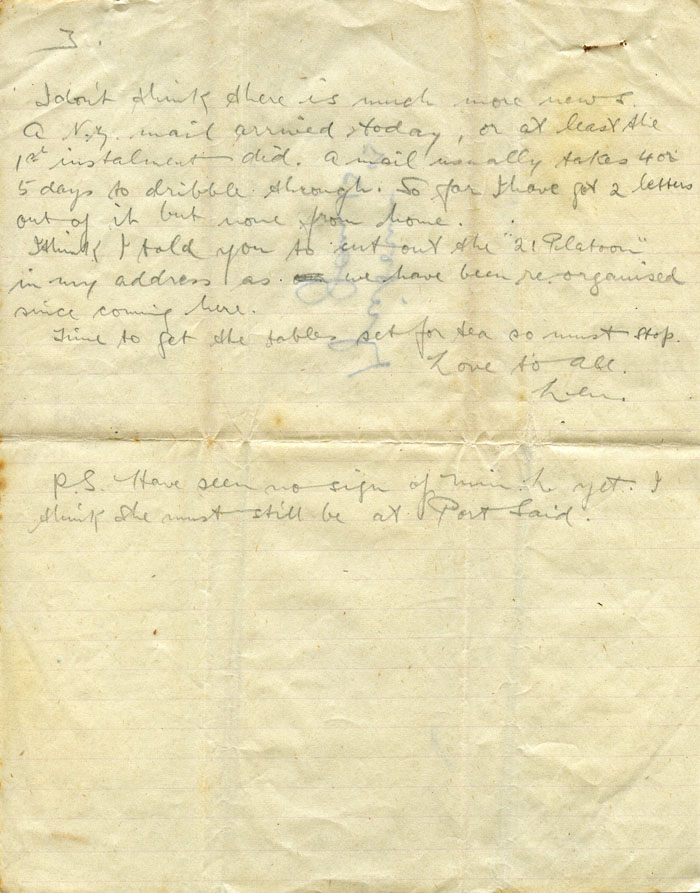 3.
I don't think there is much more news.
A N.Z. mail arrived today, or at least the
1st instalment did. A mail usually takes 4 or
5 days to dribble through. So far I have got 2 letters
out of it but none from home.
I think I told you to cut out the "21 Platoon"
in my address as we have been re-organised
since coming here.
Time to get the tables set for tea so must stop.
Love to All.
Len.
P.S. Have seen no sign of yet. I
think she must still be at Port Said.